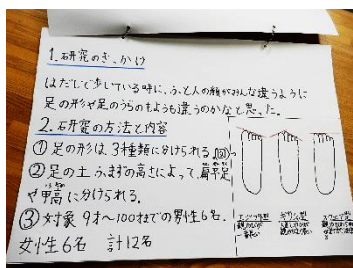 1.研究のきっかけ
はだしで歩いている時に、ふと人の顔がみんな違うように
足の形や足のうらのもようも違うのかなと思った。
2.研究の方法と内容
① 足の形は、3種類に分けられる。
② 足の土ふまずの高さによって、扁平足
や甲高に分けられる。
③ 対象 9才~100才までの男性6名、
女性6名 計12名
エジプト型
ギリシャ型
スクエア型